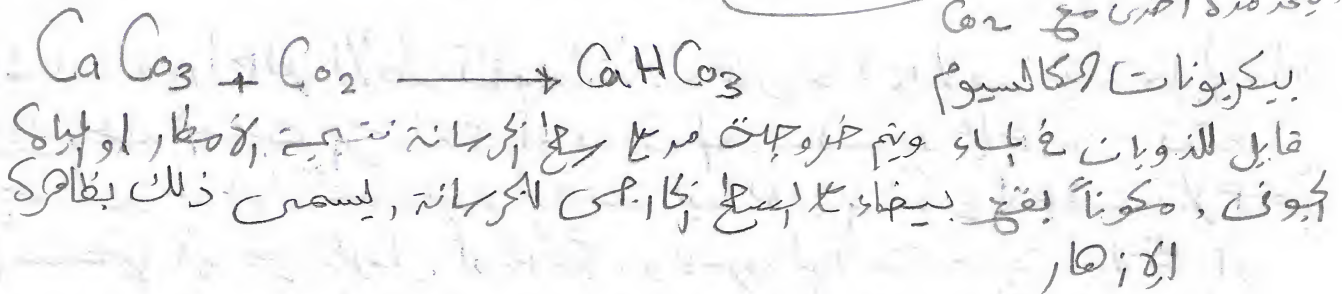 مرة أخرى مع Co2
CaCo3 + Co2 → CaHCo3 بيكربونات الكالسيوم
قابل للذوبان في الماء ويتم خروجة من على سطح الخرسانة نتيجة الأمطار او المياة
الجوفى, مكوناً بقع بيضاء على السطح الخارجى للخرسانة, يسمى ذلك بظاهرة
الازهار